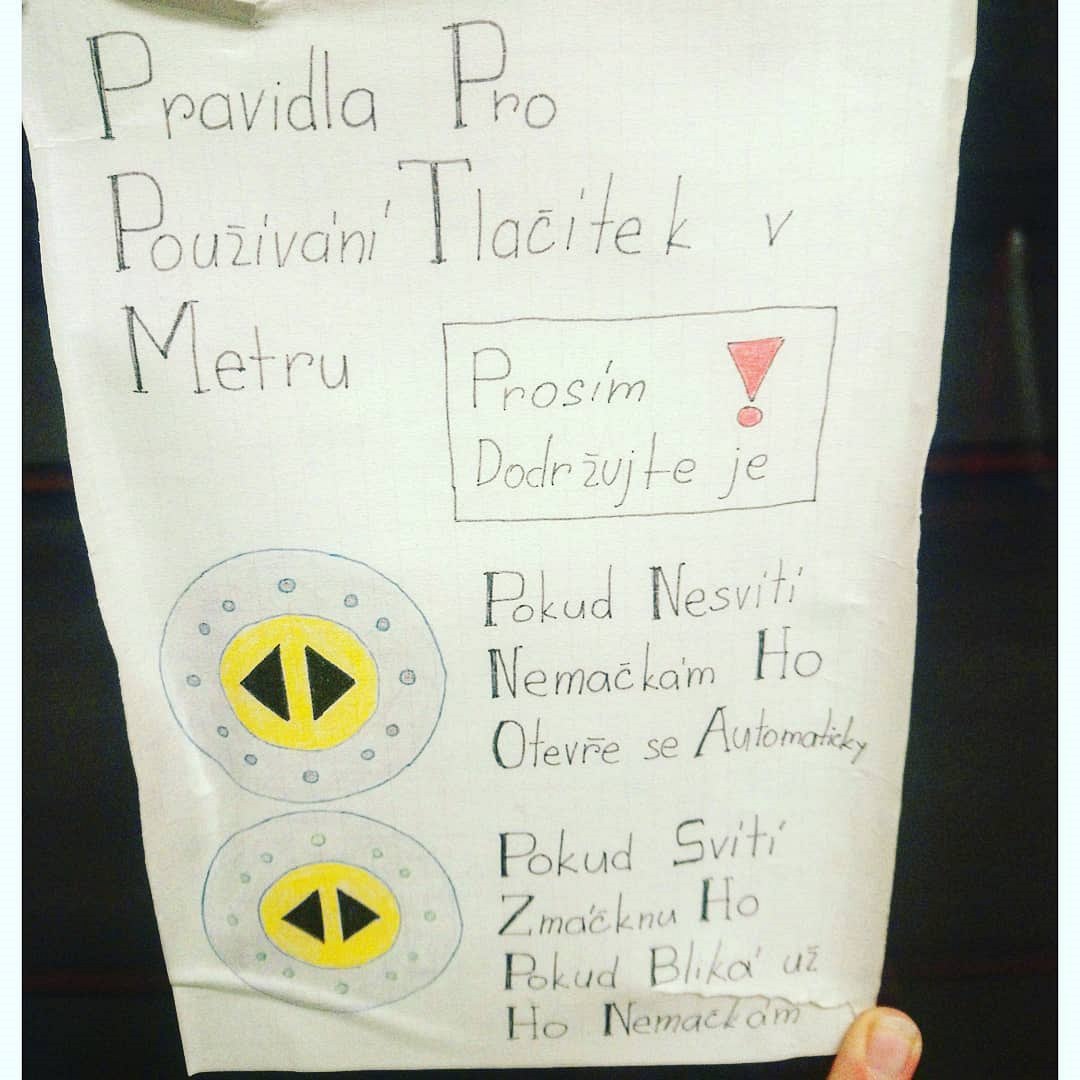 Pravidla Pro
Používání Tlačítek v
Metru
Prosím !
Dodržujte je
Pokud Nesvítí
Nemačkám Ho
Otevře se Automaticky
Pokud Svítí
Zmáčknu Ho
Pokud Bliká už
Ho Nemačkám